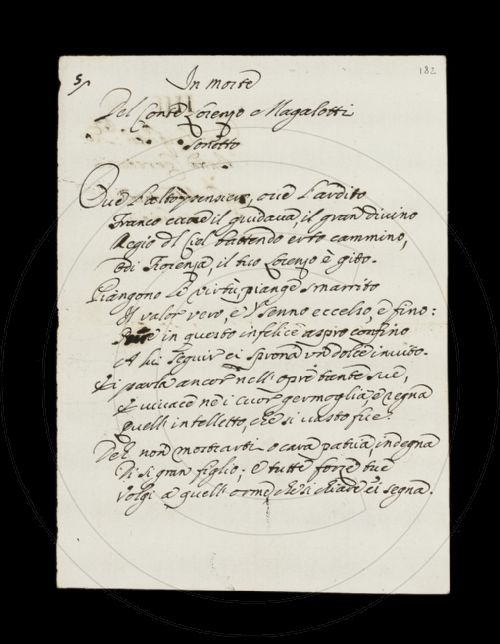 5
182
In Morte
Del Conte Lorenzo Magalotti
Sonetto
Ove l'alto pensiere, ove l'ardito
Franco il guidava, il gran divino
Regio del Ciel battendo erto cammino,
Odi Fiorenza, il tuo Lorenzo è gito.
Piangono le virtù, piange smarrito
Il valor vero, e 'l senno eccelso, e fino:
in questo infelice aspro confino
A lui seguir ci sprona un dolce invito.
Ei parla ancor nell'opre tante sue,
E vivace ne i cuor germoglia, e regna
Quell'intelletto, che sì vasto fue.
Deh non mostrarti o cara patria, indegna
Di sì gran figlio; e tutte forze tue
Volgi a quell'orme, che sì chiare ei segna.